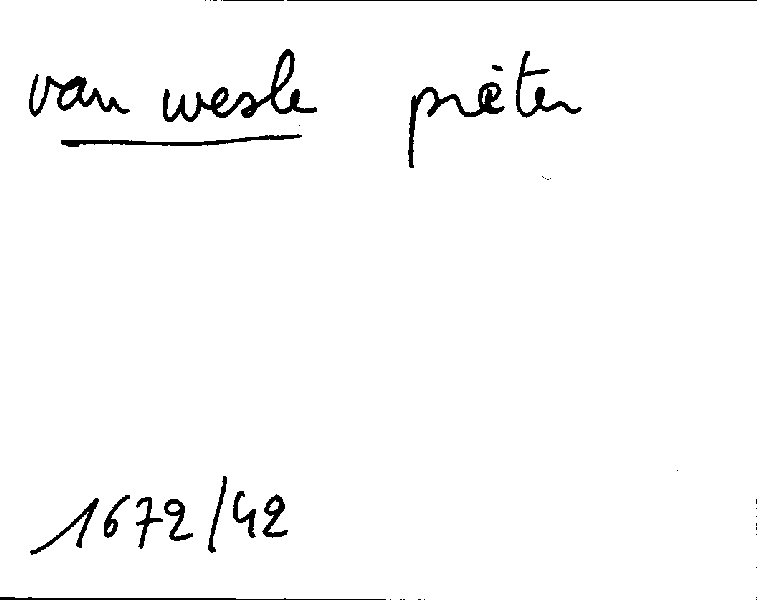 van wesle pieter
1672/42